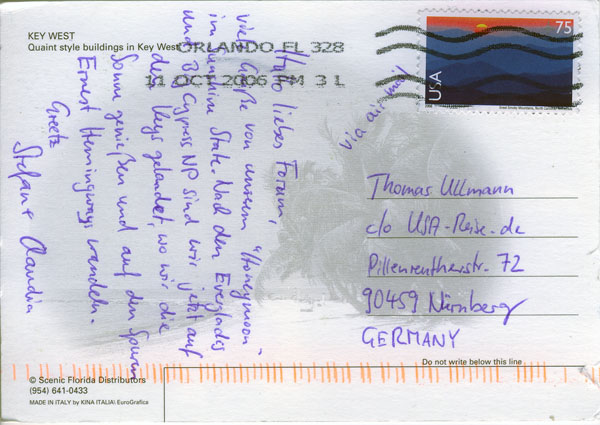 KEY WEST
Quaint style buildings in Key West
ORLANDO FL 328
11 OCT 2006 PM 3 L
75
USA
via air mail
Hallo liebes Forum,
viele Grüße von unserem "Honeymoon"
im Sunshine State. Nach den Everglades
und Big Cypress NP sind wir jetzt auf
den Keys gelandet, wo wir die
Sonne genießen und auf den Spuren
Ernest Hemingways wandeln.
Greetz
Stefan + Claudia
Thomas Ullmann
c/o USA-Reise.de
Pillenreutherstr. 72
90459 Nürnberg
GERMANY
Do not write below this line
© Scenic Florida Distributors
(954) 641-0433
MADE IN ITALY by KINA ITALIA\ EuroGrafica